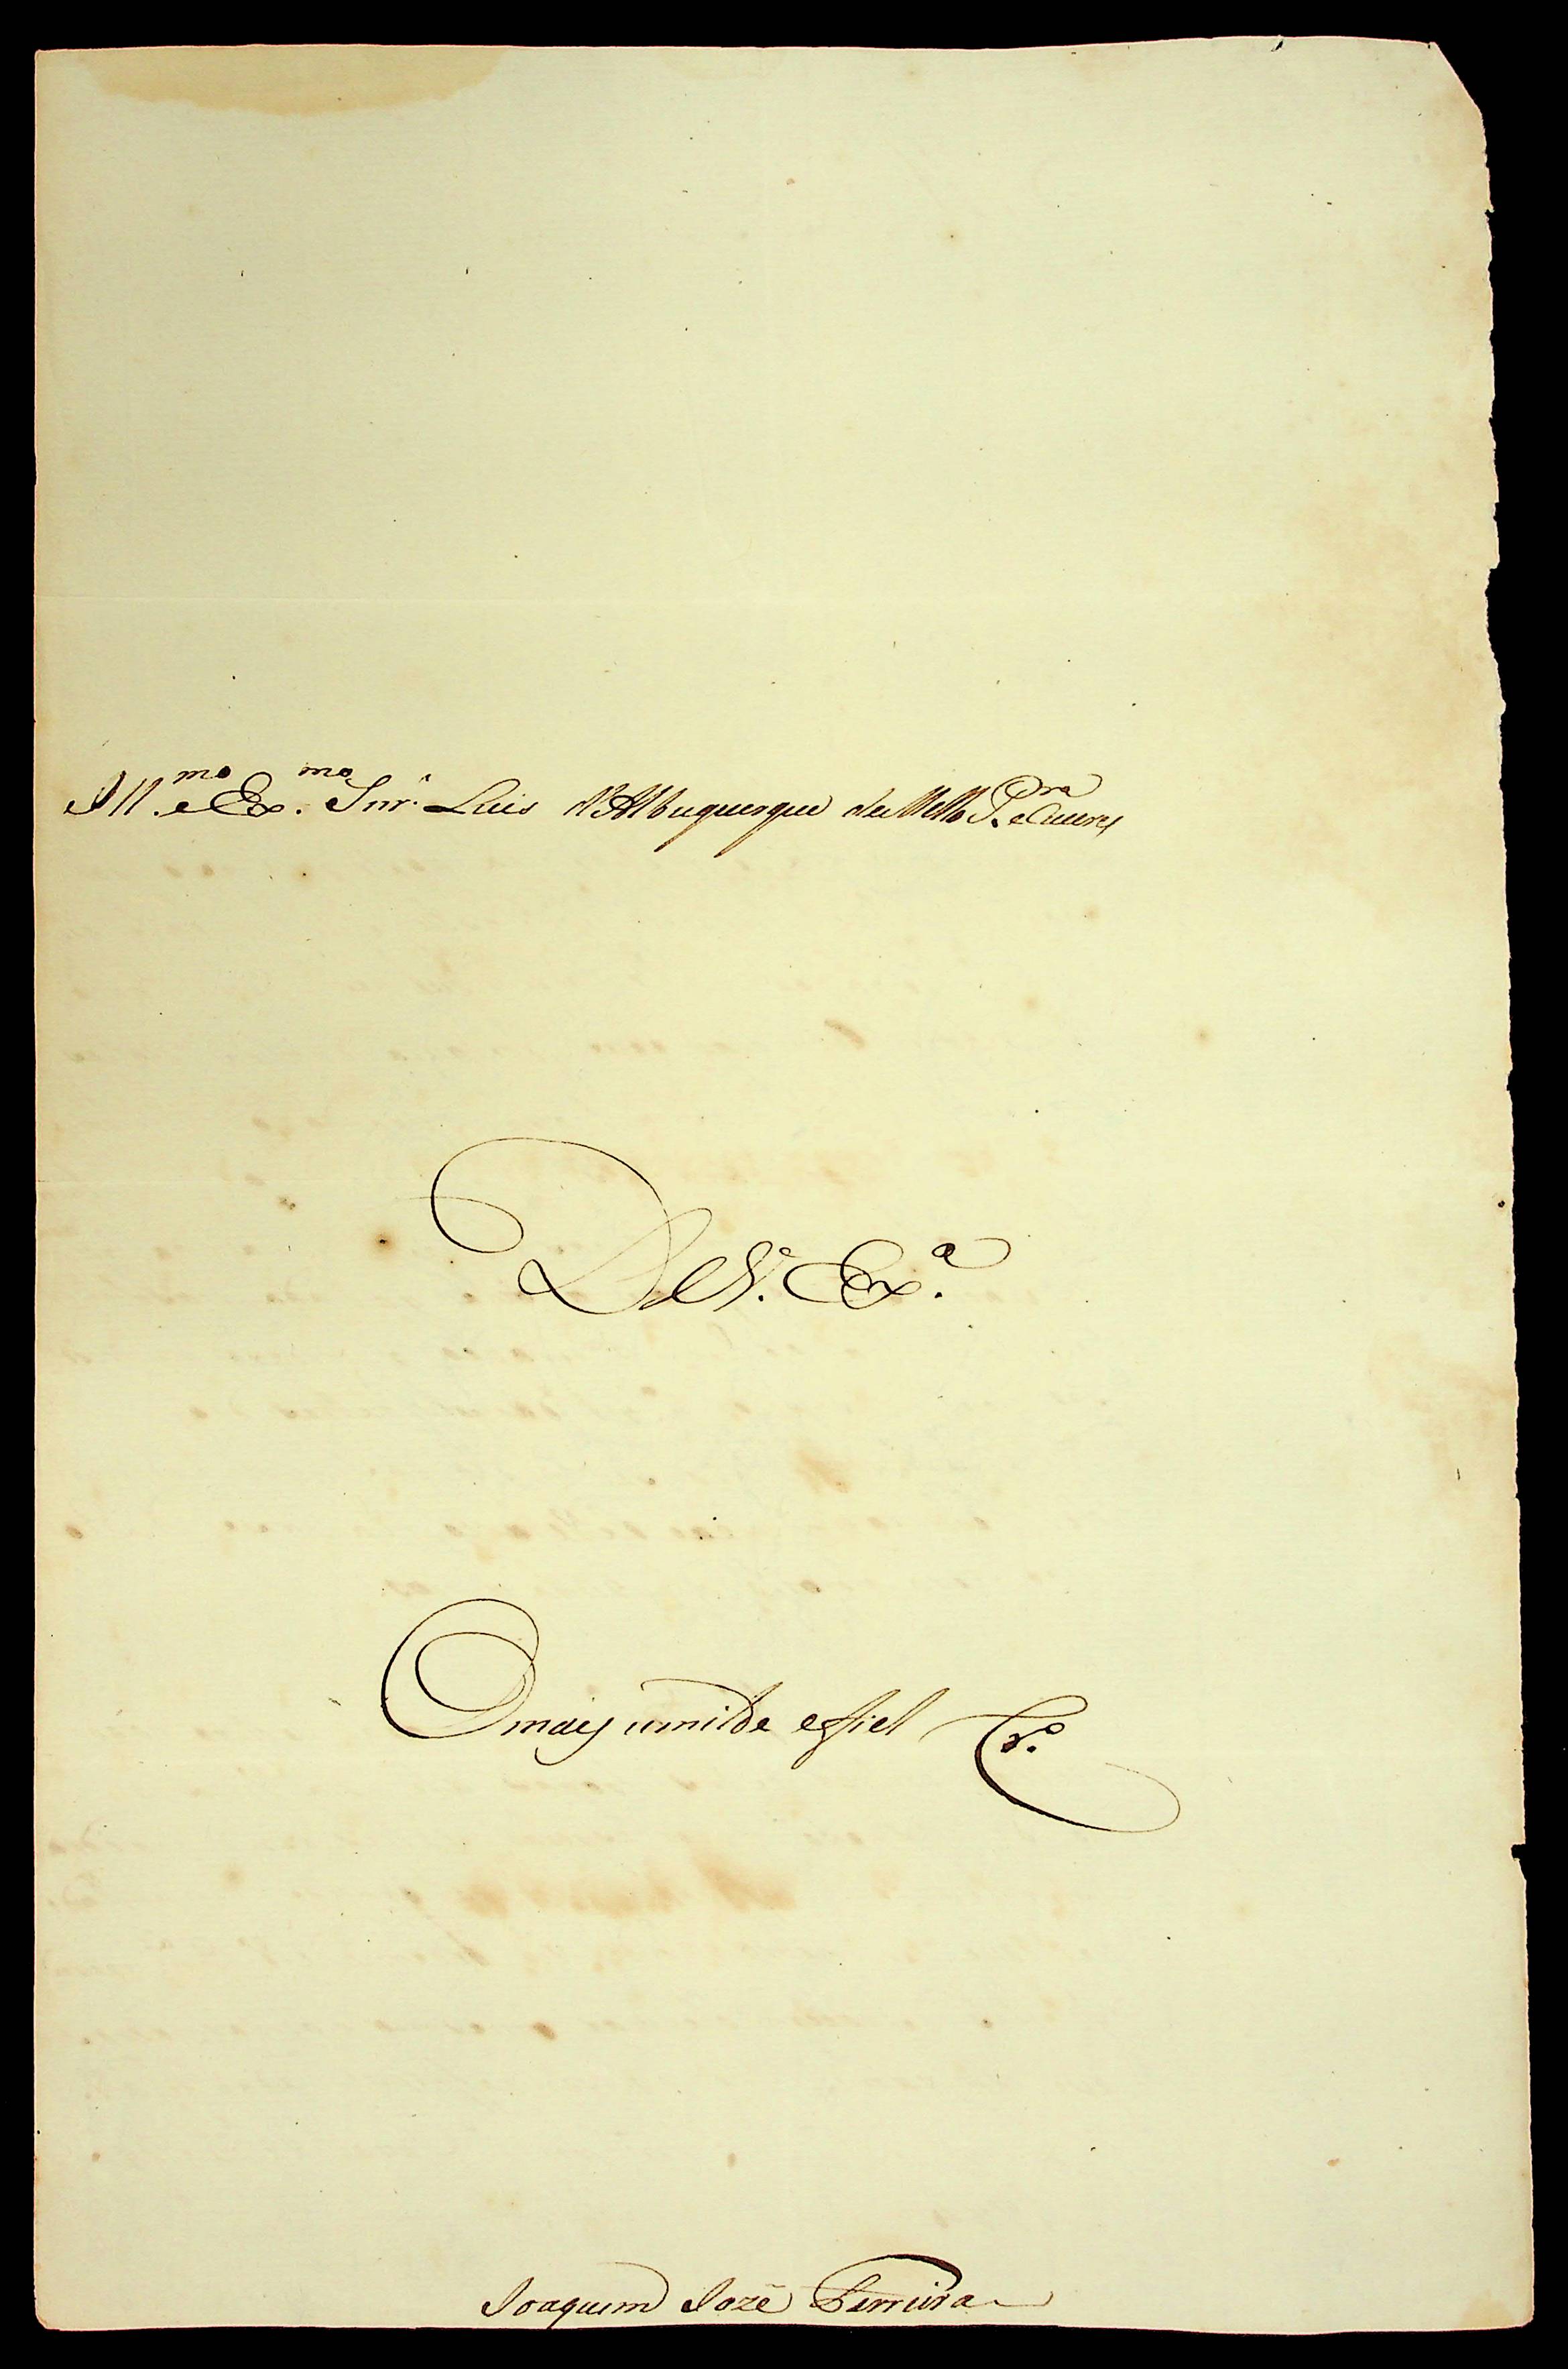 Ill.mo e Ex.mo Snr. Luis d'Albuquerque de Mello P.ra e Caceres
De V. Ex.a
O mais umilde e fiel Cr.o
Joaquim Jozé Ferreira